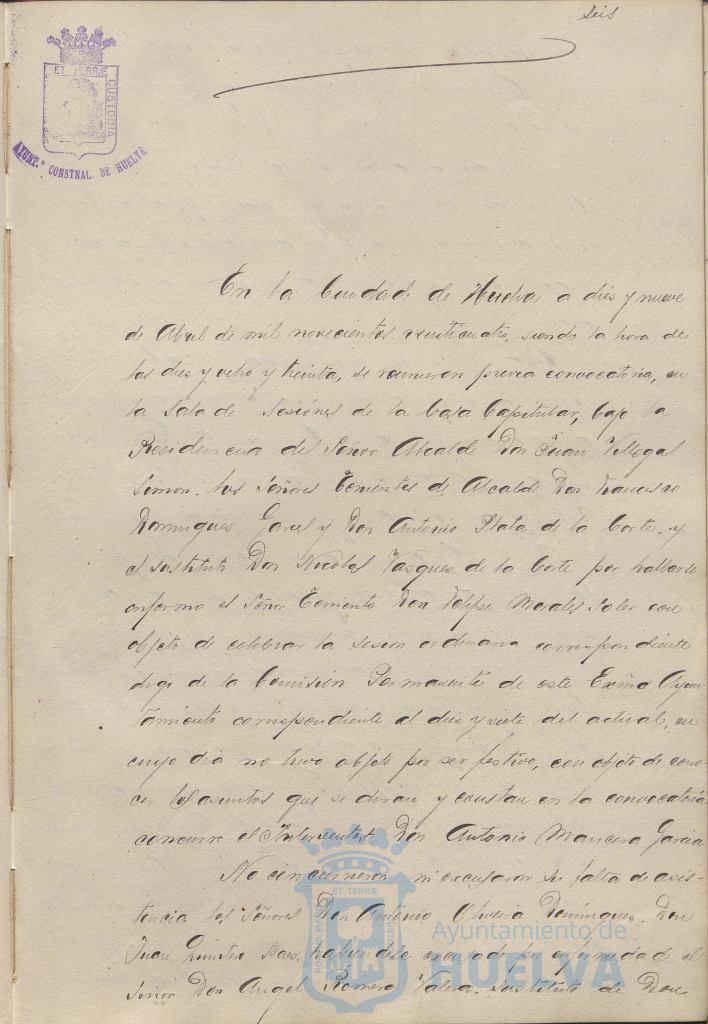 seis
ET TERRÆ
CUSTODIA
AYUNT.º CONSTNAL. DE HUELVA
En la Ciudad de Huelva a dies y nueve
de Abril de mil novecientos veinticuatro, siendo la hora de
las dies y ocho y treinta, se reunieron previa convocatoria, en
la Sala de Sesiones de la Casa Capitular, bajo la
Presidencia del Señor Alcalde Don Juan Villegas
los Señores Tenientes de Alcalde Don Francisco
Domingues Garces y Don Antonio Plata de la Corte, y
el sustituto Don Nicolas Vasques de la Corte por hallarse
enfermo el Señor Teniente Don Felipe Morales Soler con
objeto de celebrar la sesion ordinaria correspondiente
digo de la Comision Permanente de este Exmo Ayun-
tamiento correspondiente al dies y siete del actual, en
cuyo dia no tuvo objeto por ser festivo, con objeto de cono-
cer los asuntos que se diran y constan en la convocatoria
concurre el Interventor Don Antonio Mancera Garcia
No concurrieron ni excusaron su falta de asis-
tencia los Señores Don Antonio Oliveira Domingues, Don
Juan Quintero Baez, habiendose excusado por enfermedad el
Señor Don Angel Romero Valera. sustituto de Don
ET TERRÆ
Ayuntamiento de
HUELVA